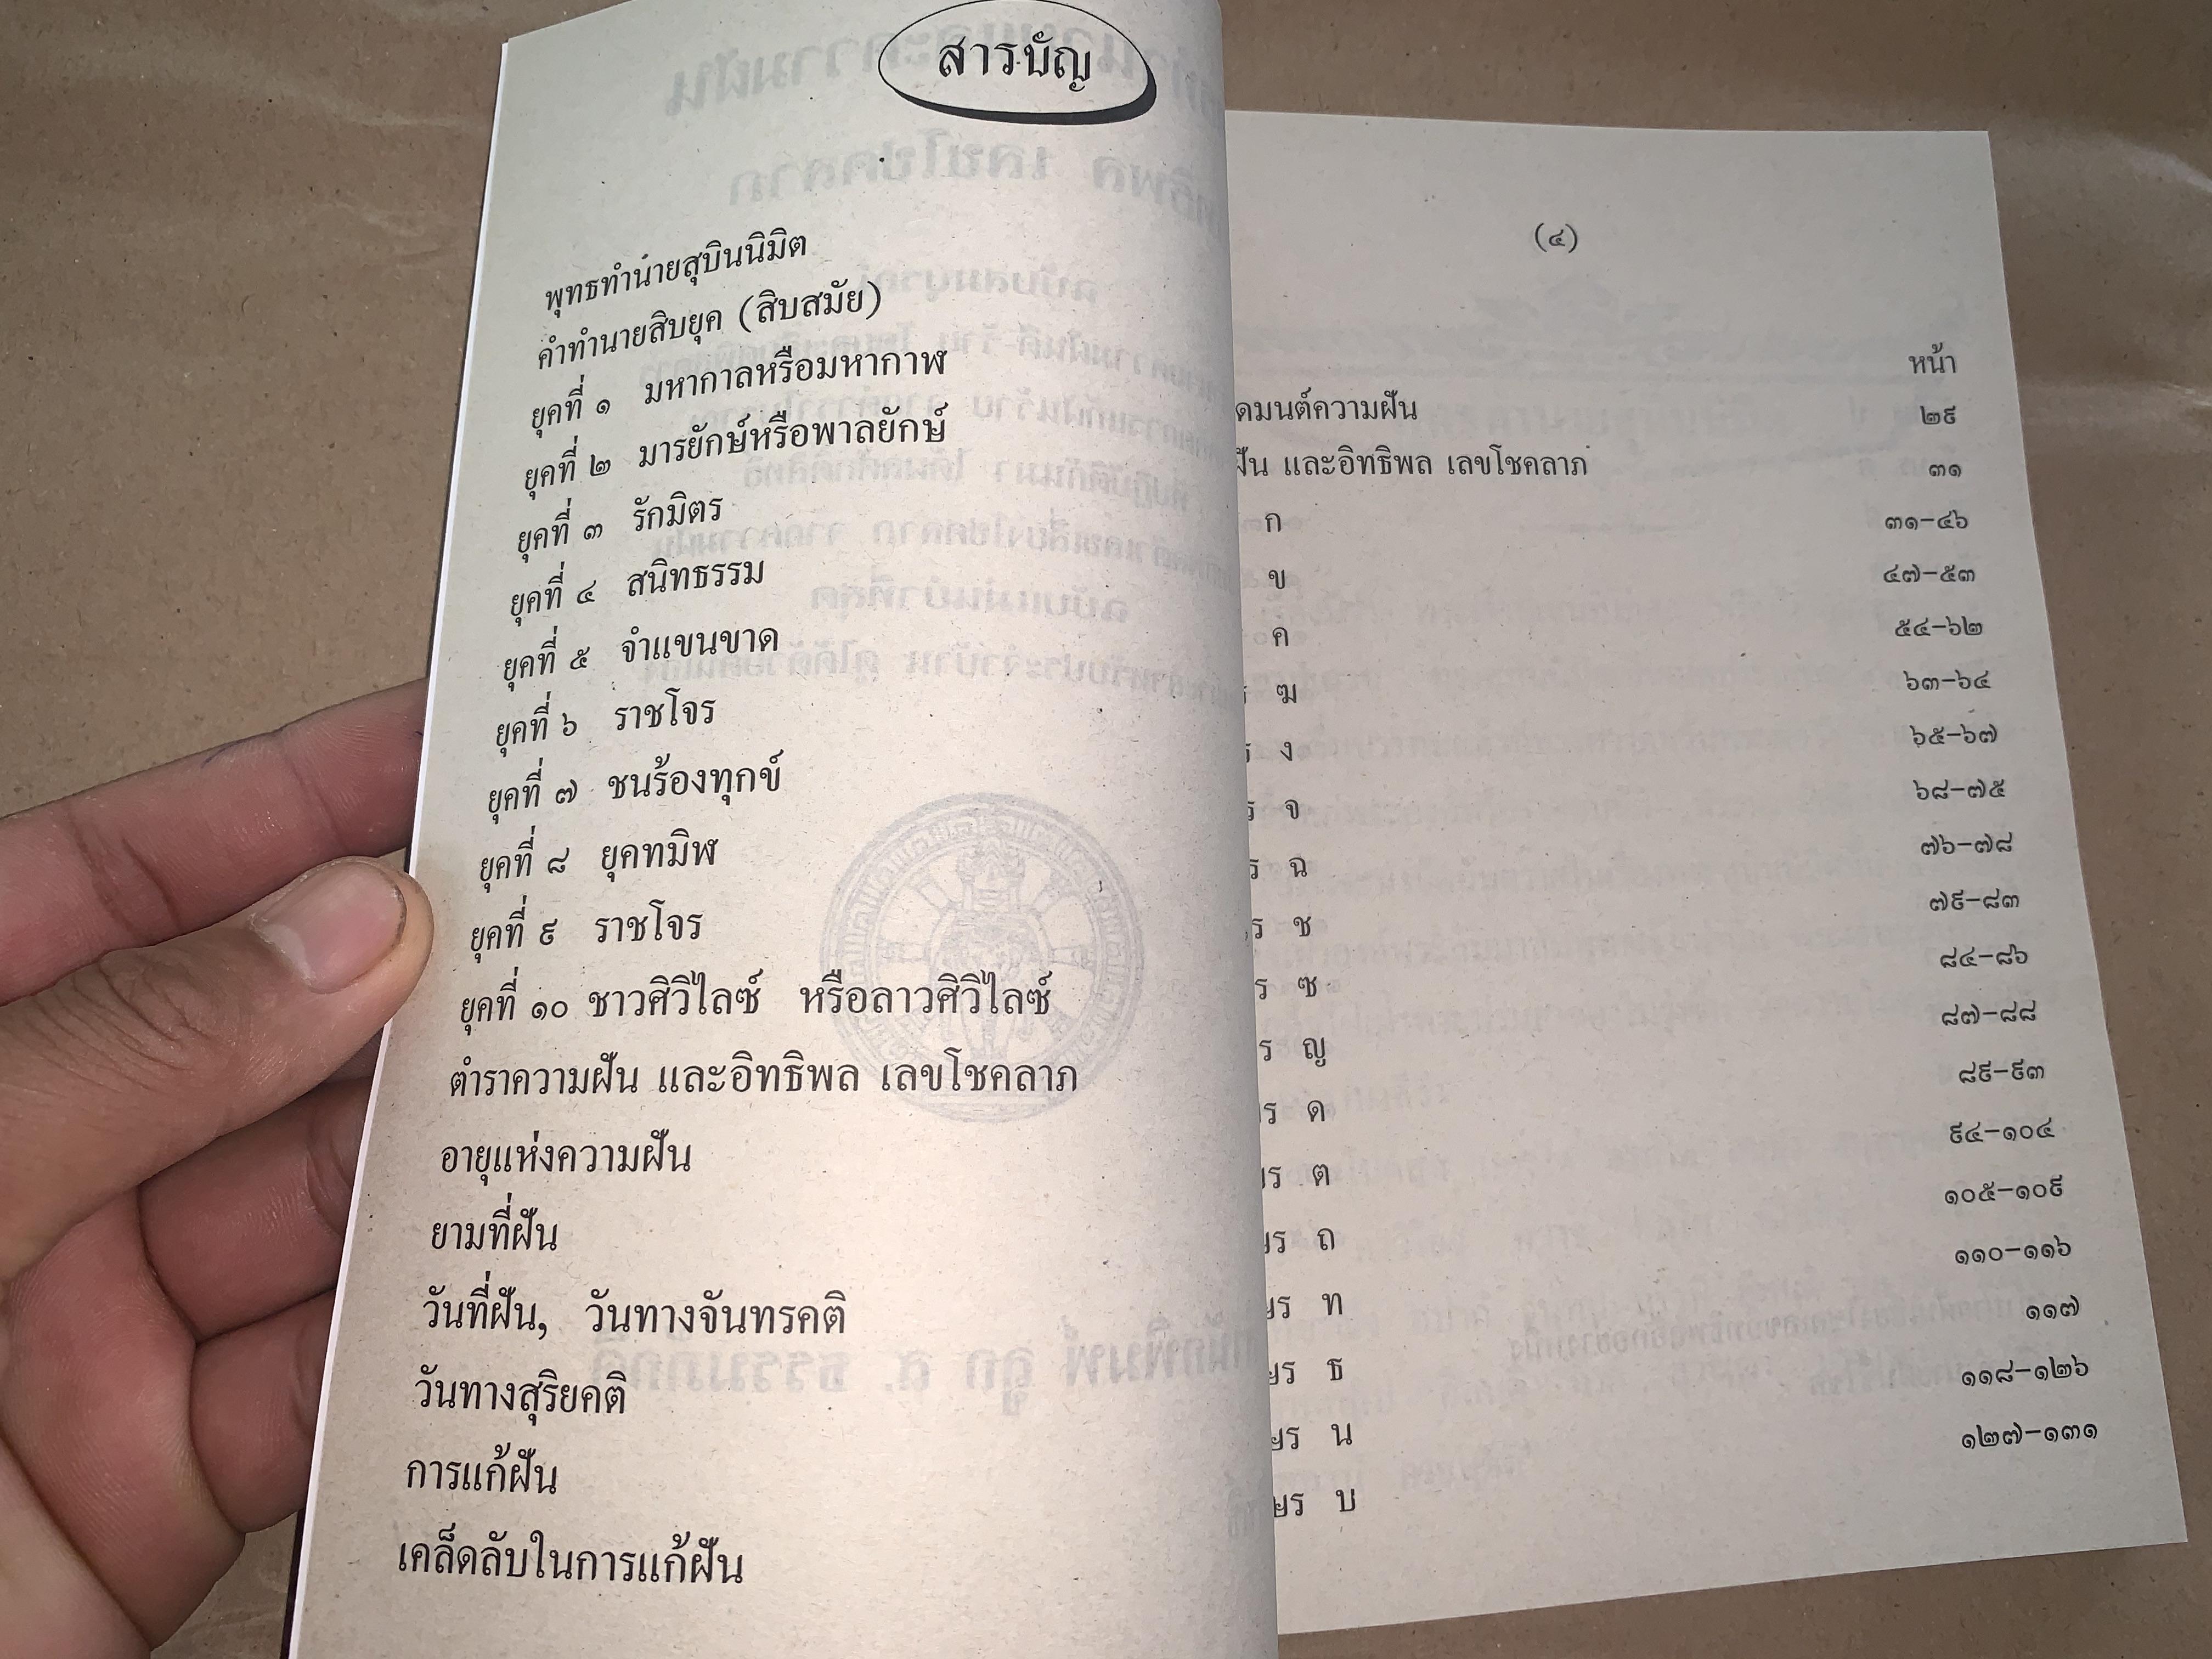 สารบัญ
พุทธทำนายสุบินนิมิต
คำทำนายสิบยุค (สิบสมัย)
ยุคที่ ๑ มหากาลหรือมหากาฬ
ยุคที่ ๒ มารยักษ์หรือพาลยักษ์
ยุคที่ ๓ รักมิตร
ยุคที่ ๔ สนิทธรรม
ยุคที่ ๕ จำแขนขาด
ยุคที่ ๖ ราชโจร
ยุคที่ ๗ ชนร้องทุกข์
ยุคที่ ๘ ยุคทมิฬ
ยุคที่ ๙ ราชโจร
ยุคที่ ๑๐ ชาวศิวิไลซ์ หรือลาวศิวิไลซ์
ตำราความฝัน และอิทธิพล เลขโชคลาภ
อายุแห่งความฝัน
ยามที่ฝัน
วันที่ฝัน, วันทางจันทรคติ
วันทางสุริยคติ
การแก้ฝัน
เคล็ดลับในการแก้ฝัน
(๔)
หน้า
ดมนต์ความฝัน ๒๙
ฝัน และอิทธิพล เลขโชคลาภ ๓๑
ก ๓๑-๔๖
ข ๔๗-๕๓
ค ๕๔-๖๒
ร ฆ ๖๓-๖๔
ร ง ๖๕-๖๗
ร จ ๖๘-๗๕
ร ฉ ๗๖-๗๘
ร ช ๗๙-๘๓
ร ซ ๘๔-๘๖
ร ญ ๘๗-๘๘
ร ด ๘๙-๙๓
ร ต ๙๔-๑๐๔
ษร ถ ๑๐๕-๑๐๙
ษร ท ๑๑๐-๑๑๖
ษร ธ ๑๑๗
ษร น ๑๑๘-๑๒๖
ษร บ ๑๒๗-๑๓๑